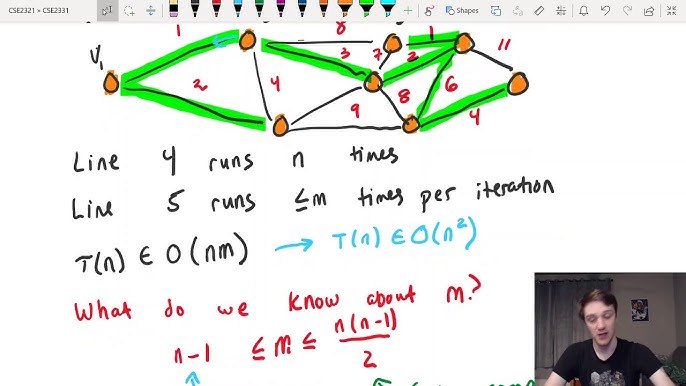 CSE2321 » CSE2331
Shapes
Convert
1 8 11
V1 3 7 1 2
2 4 6
9 8 4
Line 4 runs n times
Line 5 runs ≤m times per iteration
T(n) ∈ O(nm) → T(n) ∈ O(n²)
What do we know about m?
n-1 ≤ m ≤ n(n-1)/2